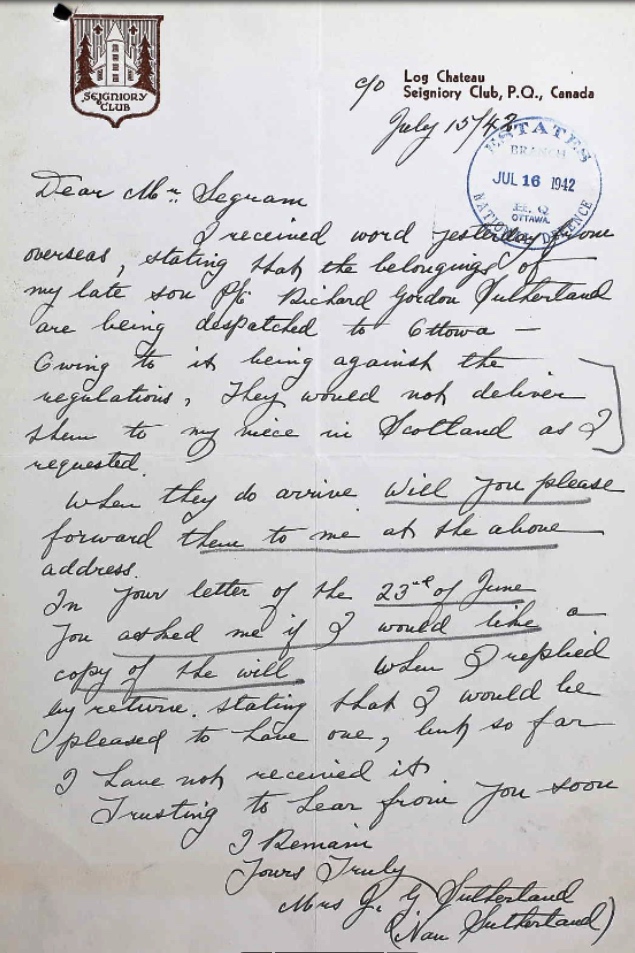 SEIGNIORY
CLUB
c/o Log Chateau
Seigniory Club, P.Q., Canada
July 15/42
ESTATES
BRANCH
JUL 16 1942
H.Q.
OTTAWA.
NATIONAL DEFENCE
Dear Mr. Segram
I received word yesterday from
overseas, stating that the belongings of
my late son Pte Richard Gordon Sutherland
are being despatched to Ottowa —
Owing to it being against the
regulations, They would not deliver
them to my niece in Scotland as I
requested.
When they do arrive Will you please
forward them to me at the above
address.
In your letter of the 23rd of June
you asked me if I would like a
copy of the will When I replied
by return. stating that I would be
pleased to have one, but so far
I have not received it
Trusting to hear from you soon
I Remain
Yours Truly
Mrs J. G Sutherland
(Nan Sutherland)